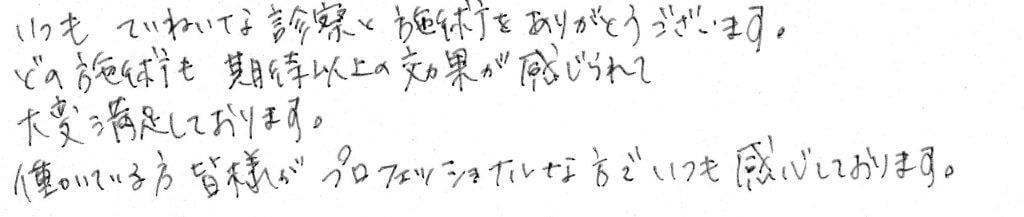 いつも ていねいな診察と施術をありがとうございます。
どの施術も 期待以上の効果が感じられて
大変満足しております。
働いている方皆様が プロフェッショナルな方でいつも感心しております。